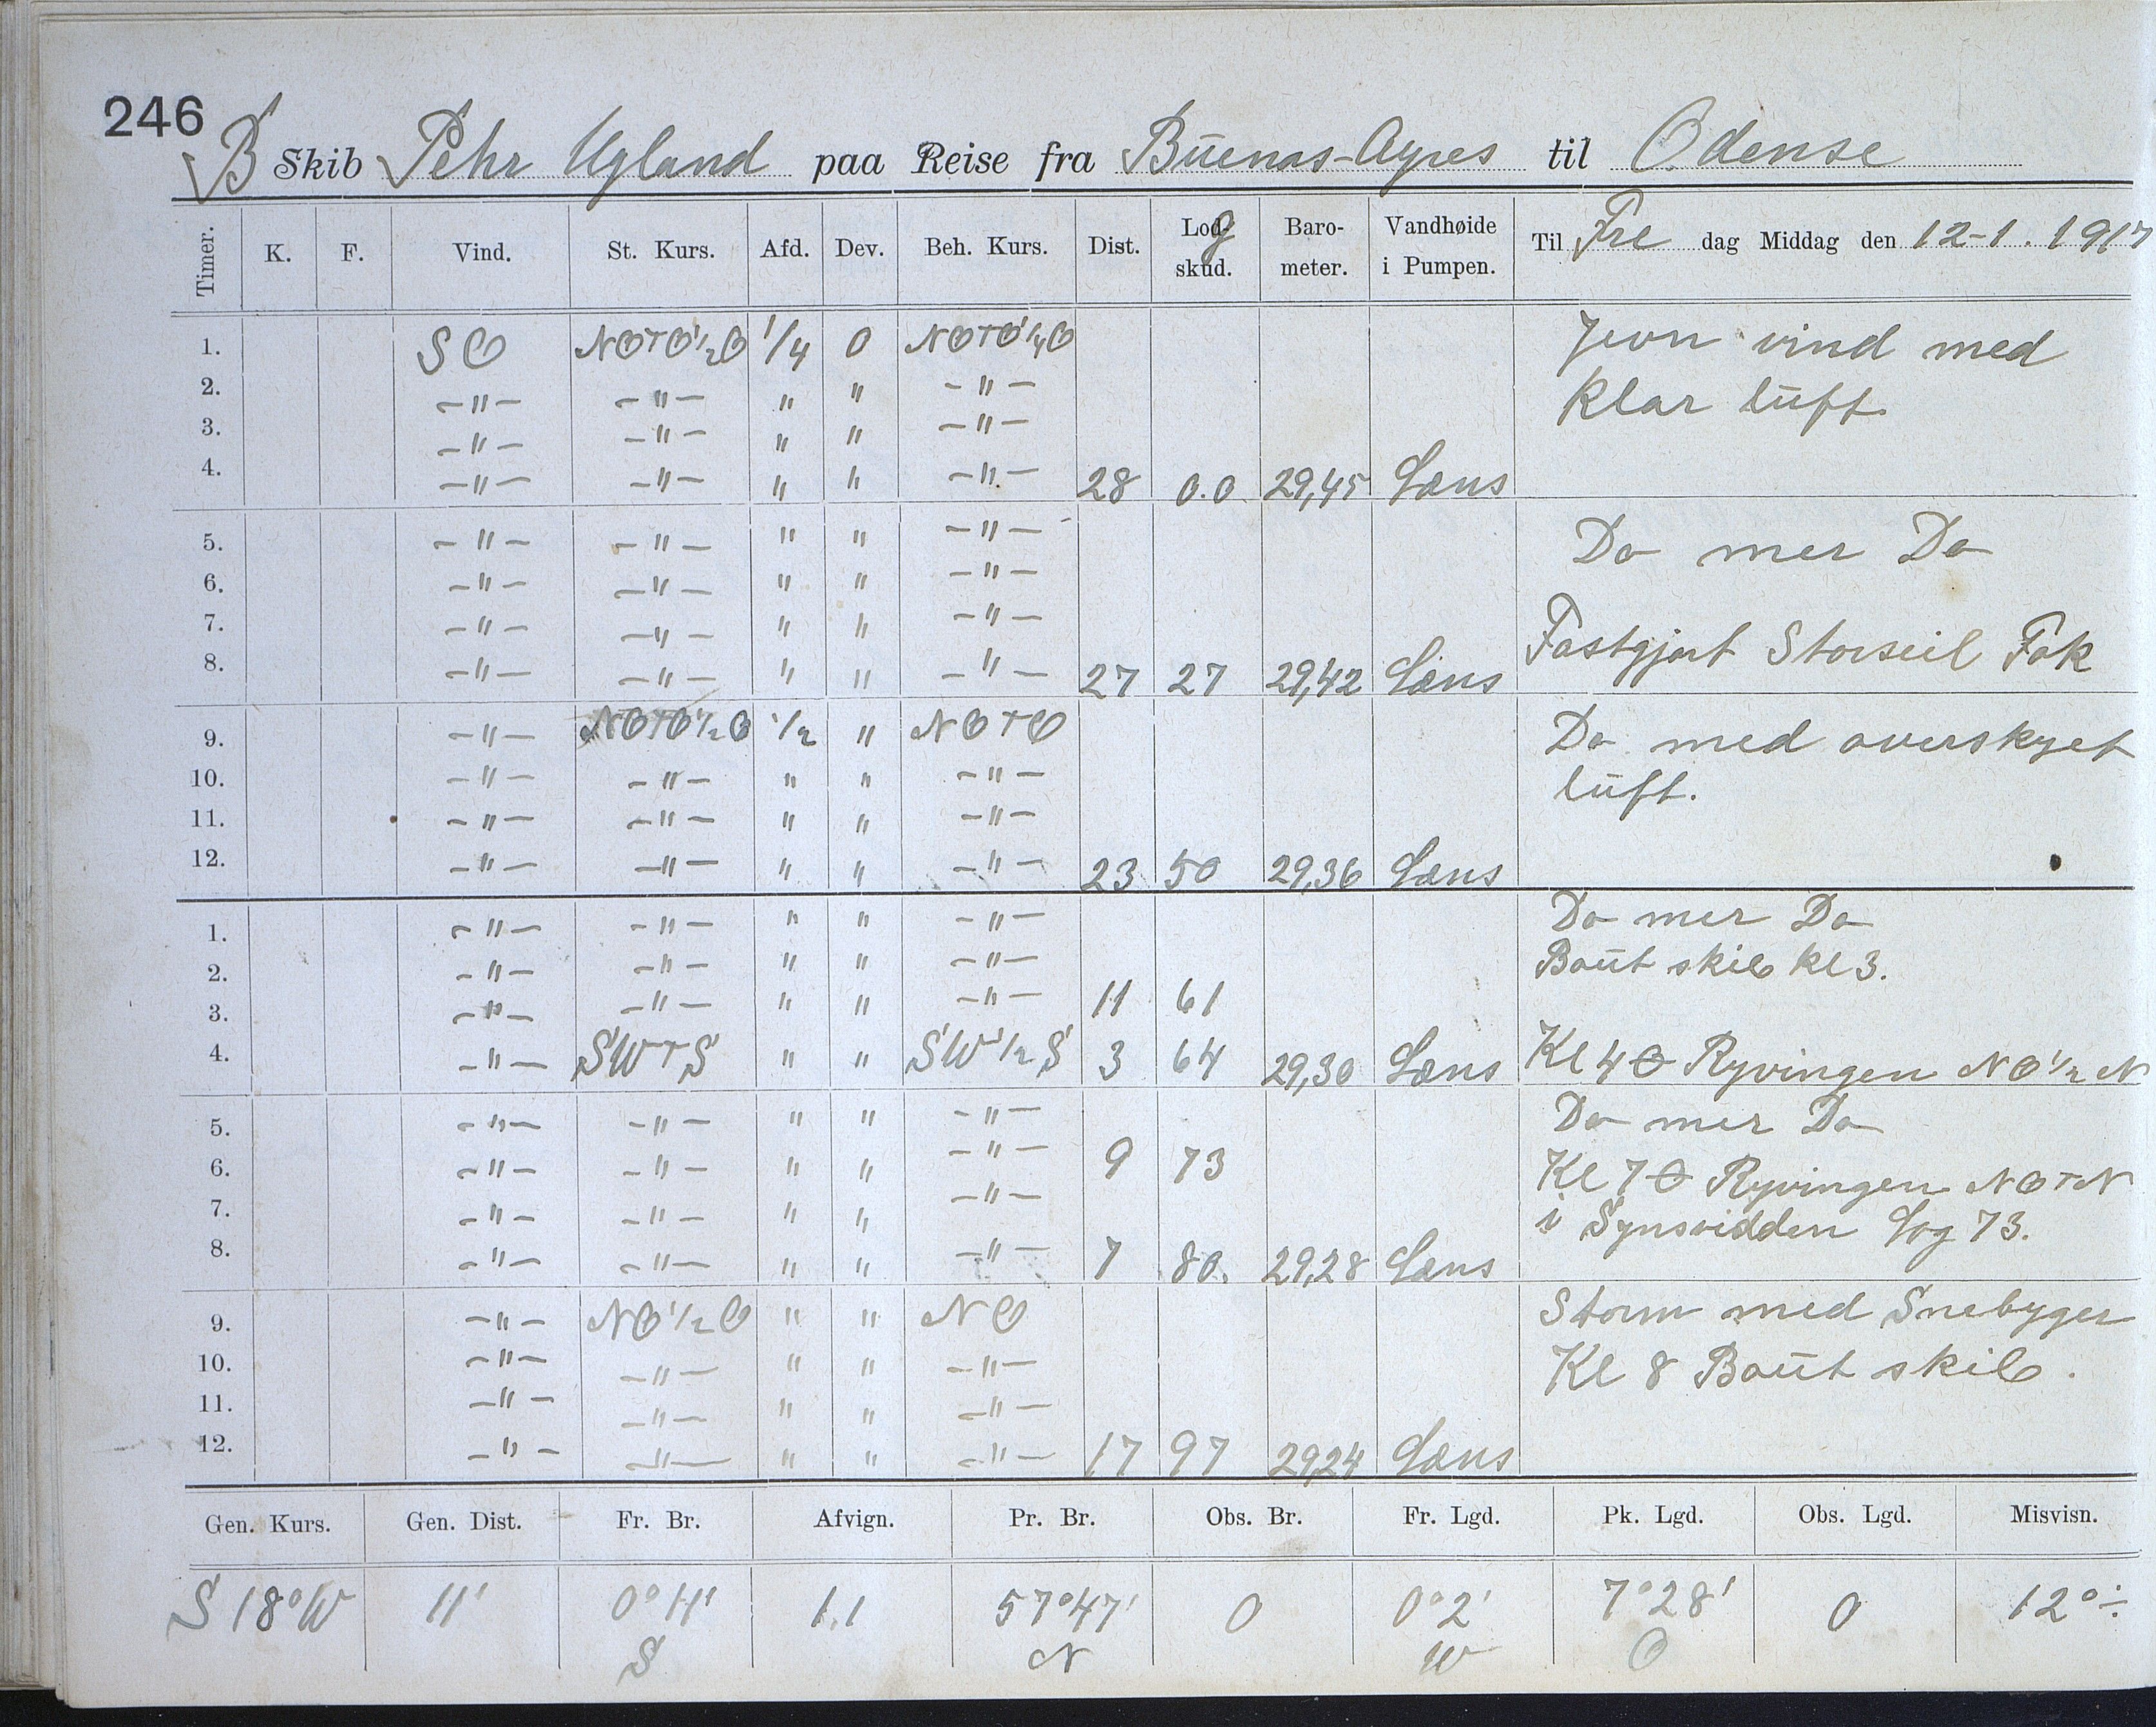 246
B Skib Pehr Ugland paa Reise fra Buenos-Ayres til Odense
Timer. K. F. Vind. St. Kurs. Afd. Dev. Beh. Kurs. Dist. Lodg skud. Baro- meter. Vandhøide i Pumpen. Til Fre dag Middag den 12-1. 1917
1. SO NOTO½O ¼ 0 NOTO¼O Jevn vind med
2. -"- -"- " " -"- klar luft.
3. -"- -"- " " -"-
4. -"- -"- " " -"- 28 0.0 29,45 Læns
5. -"- -"- " " -"- Do mer Do
6. -"- -"- " " -"-
7. -"- -"- " " -"- Fastgjort Storseil Fok
8. -"- -"- " " -"- 27 27 29,42 Læns
9. -"- NOTO½O ½ " NOTO Do med overskyet
10. -"- -"- " " -"- luft.
11. -"- -"- " " -"-
12. -"- -"- " " -"- 23 50 29,36 Læns
1. -"- -"- " " -"- Do mer Do
2. -"- -"- " " -"- Bout skib kl 3.
3. -"- -"- " " -"- 11 61
4. -"- SWTS " " SW½S 3 64 29,30 Læns Kl 4 O Ryvingen NO½N
5. -"- -"- " " -"- Do mer Do
6. -"- -"- " " -"- 9 73 Kl 7 O Ryvingen NOTN
7. -"- -"- " " -"- i Synsvidden Log 73.
8. -"- -"- " " -"- 7 80. 29,28 Læns
9. -"- NO½O " " NO Storm med Snebyger
10. -"- -"- " " -"- Kl 8 Bout skib.
11. -"- -"- " " -"-
12. -"- -"- " " -"- 17 97 29,24 Læns
Gen. Kurs. Gen. Dist. Fr. Br. Afvign. Pr. Br. Obs. Br. Fr. Lgd. Pk. Lgd. Obs. Lgd. Misvisn.
S 18° W 11' 0° 11' 1,1 57° 47' 0 0° 2' 7° 28' 0 12° ÷
S N W O